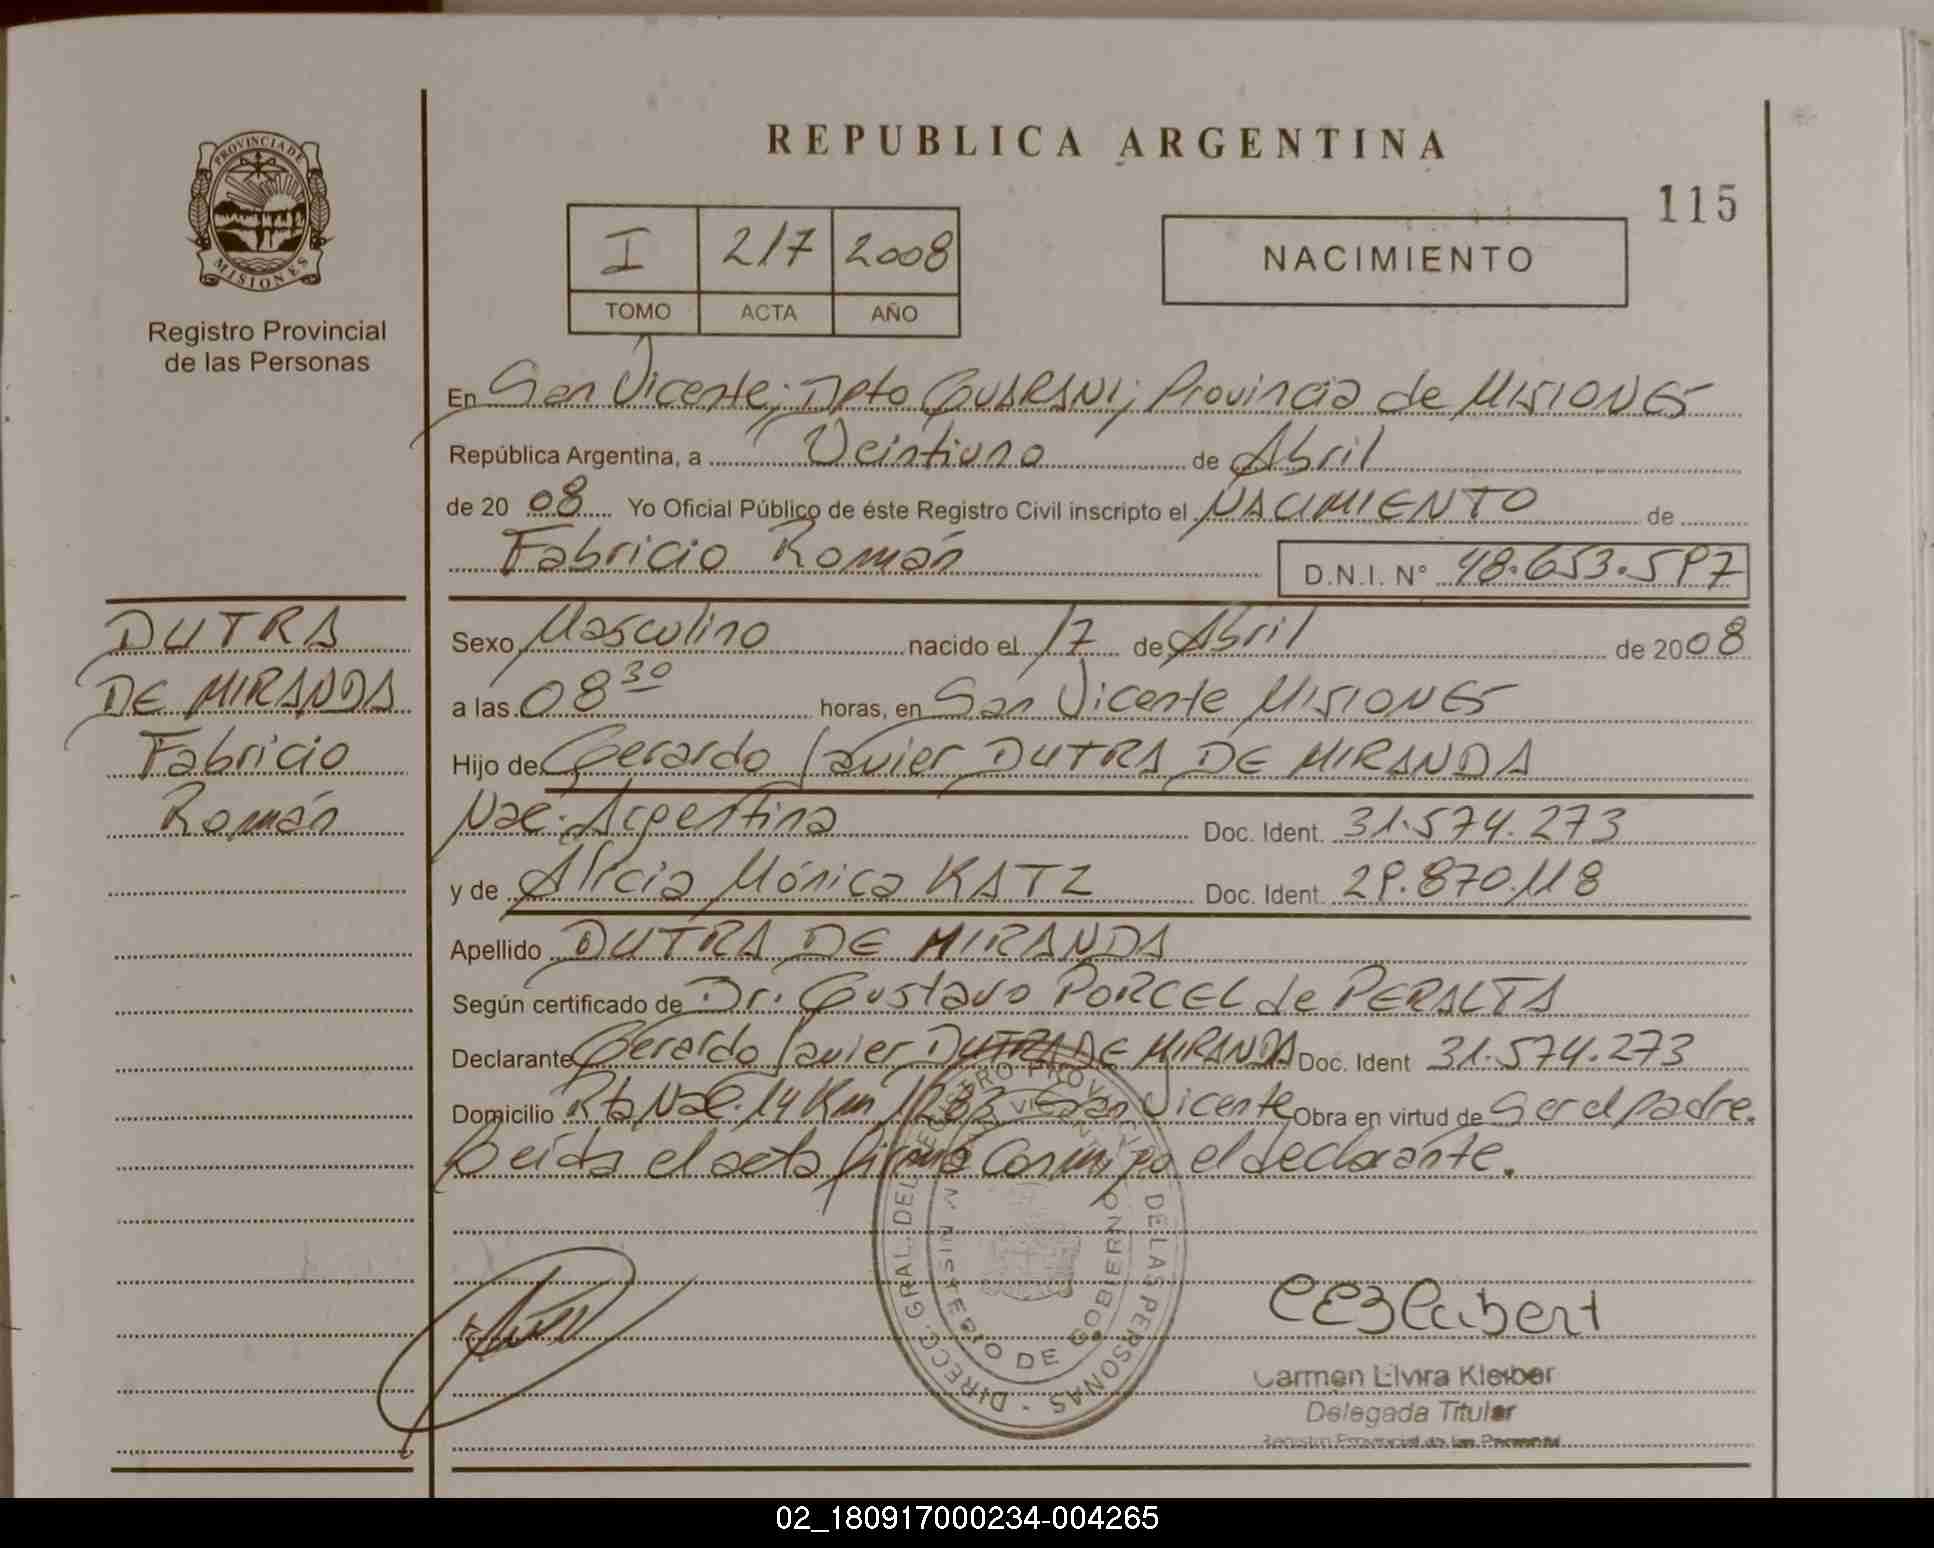 REPUBLICA ARGENTINA
115
PROVINCIA DE
MISIONES
Registro Provincial
de las Personas
I 217 2008
TOMO ACTA AÑO
NACIMIENTO
En San Vicente; Dpto GUARANI; Provincia de MISIONES
República Argentina, a Veintiuno de Abril
de 2008 Yo Oficial Público de éste Registro Civil inscripto el NACIMIENTO de
Fabricio Román D.N.I. N° 48.653.597
DUTRA
DE MIRANDA
Fabricio
Román
Sexo Masculino nacido el 17 de Abril de 2008
a las 08 30 horas, en San Vicente MISIONES
Hijo de Gerardo Javier DUTRA DE MIRANDA
Nac. Argentina Doc. Ident. 31.574.273
y de Alicia Mónica KATZ Doc. Ident. 29.870.118
Apellido DUTRA DE MIRANDA
Según certificado de Dr. Gustavo PORCEL de PERALTA
Declarante Gerardo Javier DUTRA DE MIRANDA Doc. Ident 31.574.273
Domicilio Rta Nac. 14 Km 1283 San Vicente Obra en virtud de Ser el padre.
Leída el acta firma Conmigo el declarante.
DIRECC. GRAL. DEL REGISTRO PROVINCIAL DE LAS PERSONAS
MINISTERIO DE GOBIERNO
Carmen Elvira Kleiber
Delegada Titular
Registro Provincial de las Personas
02_180917000234-004265